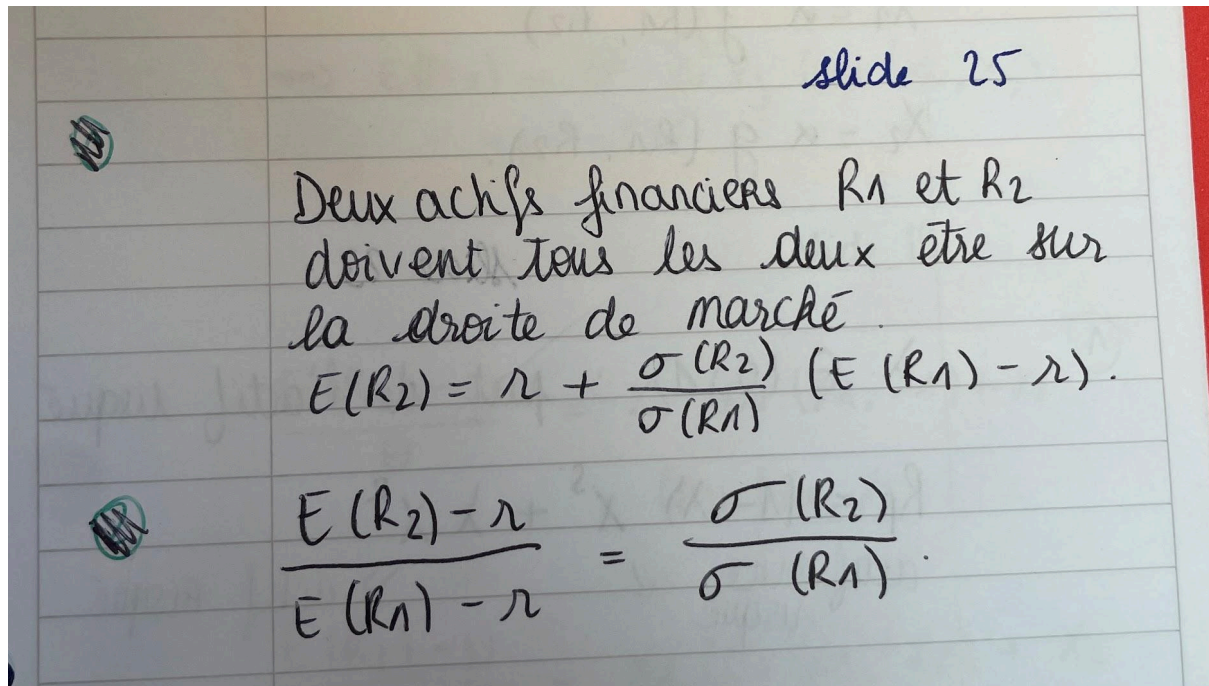 slide 25
Deux actifs financiers R1 et R2
doivent tous les deux etre sur
la droite de marché.
E(R2) = r + σ(R2)/σ(R1) (E(R1) - r).
(E(R2) - r)/(E(R1) - r) = σ(R2)/σ(R1).